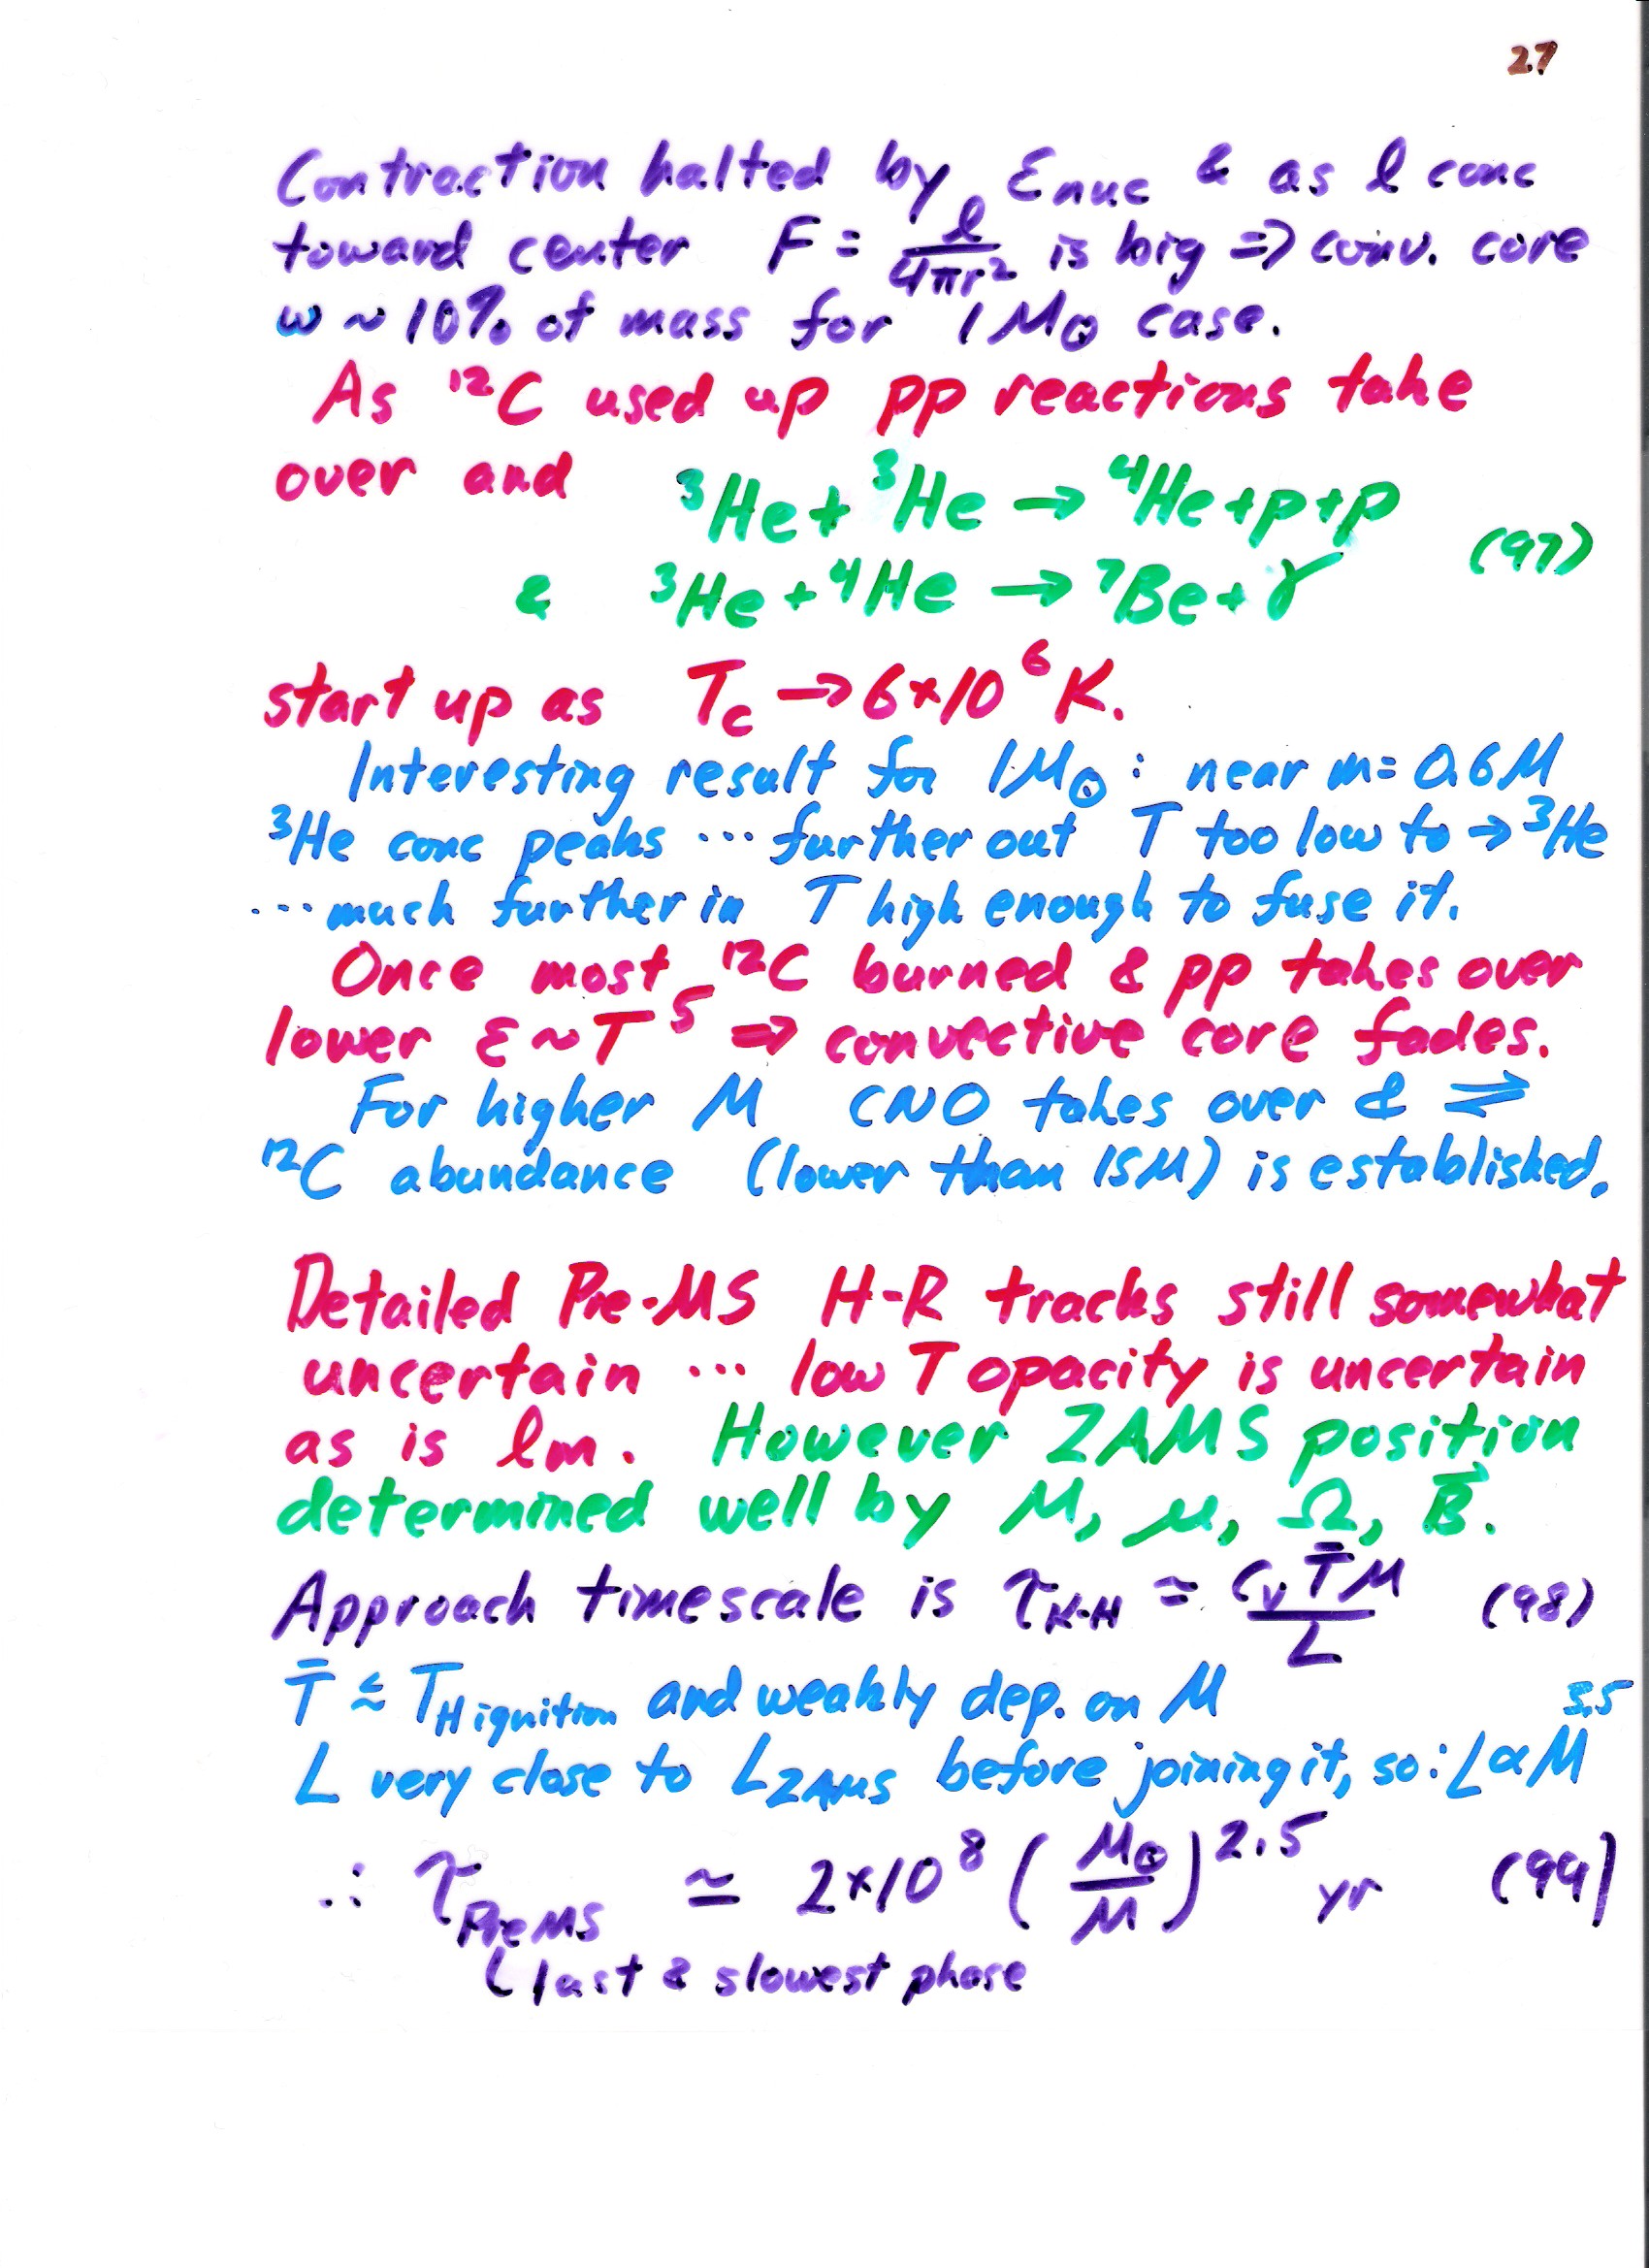 27
Contraction halted by εnuc & as l conc
toward center F = l/4πr² is big ⇒ conv. core
w ~ 10% of mass for 1M⊙ case.
As ¹²C used up pp reactions take
over and ³He + ³He → ⁴He + p + p
(97)
& ³He + ⁴He → ⁷Be + γ
start up as Tc → 6×10⁶ K.
Interesting result for 1M⊙: near m = 0.6M
³He conc peaks ... further out T too low to → ³He
... much further in T high enough to fuse it.
Once most ¹²C burned & pp takes over
lower ε ~ T⁵ ⇒ convective core fades.
For higher M CNO takes over & ⇌
¹²C abundance (lower than ISM) is established.
Detailed Pre-MS H-R tracks still somewhat
uncertain ... low T opacity is uncertain
as is lm. However ZAMS position
determined well by M, μ, Ω, B⃗.
Approach timescale is τK-H ≃ cv T̄ M / L (98)
T̄ ≲ TH ignition and weakly dep. on M
L very close to LZAMS before joining it, so: L ∝ M³·⁵
∴ τPreMS ≃ 2×10⁸ (M⊙/M)²·⁵ yr (99)
last & slowest phase